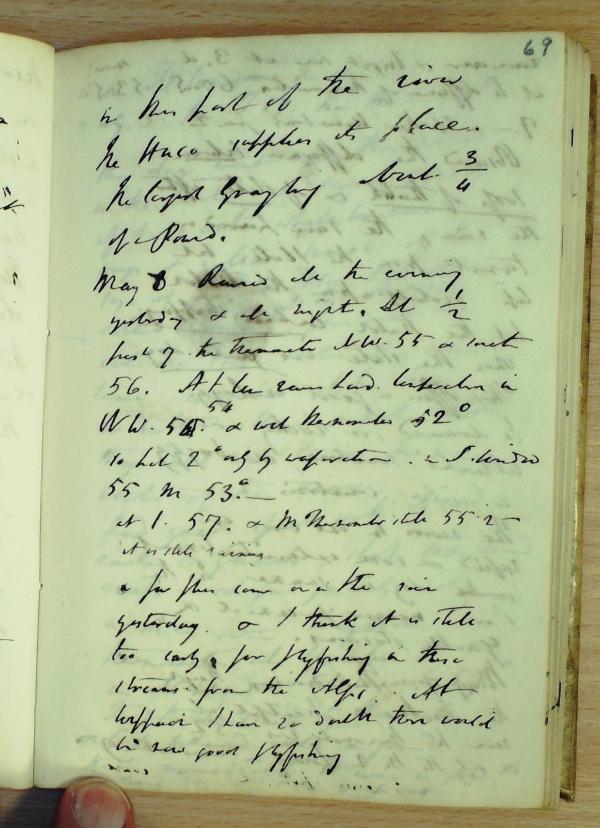 69
in this part of the river
The Huco supplies its place.
The largest Grayling about 3/4
of a Pound.
May 8 Rained all the evening
yesterday & all night. At 1/2
past 7 the thermometer N.W. 55 & south
56. At ten rains hard. temperature in
N W. 54 & wet thermometer 52°
so that 2° only by evaporation. in S. window
55 53°.—
at 1. 57. & thermometer still 55.2 —
it is still raining
a few flies came on in the rain
yesterday. & I think it is still
too early for flyfishing in these
streams from the Alps. At
I have no doubt there would
be now good flyfishing